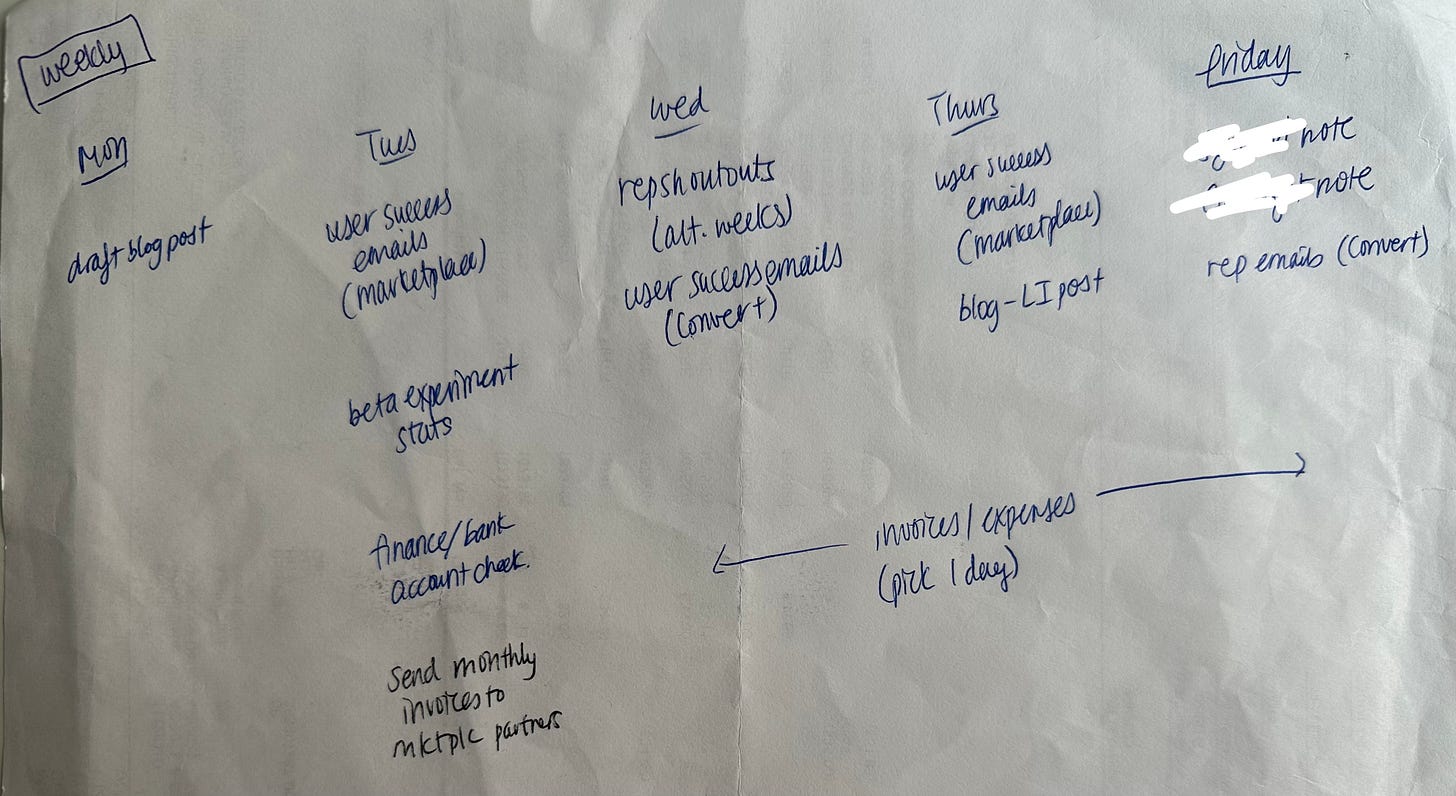 weekly
Mon
draft blog post
Tues
user success
emails
(marketplace)
beta experiment
stats
finance/bank
account check.
Send monthly
invoices to
mktplc partners
Wed
rep shoutouts
(alt. weeks)
user success emails
(Convert)
Thurs
user success
emails
(marketplace)
blog-LI post
invoices/expenses
(pick 1 day)
friday
note
note
rep emails (Convert)